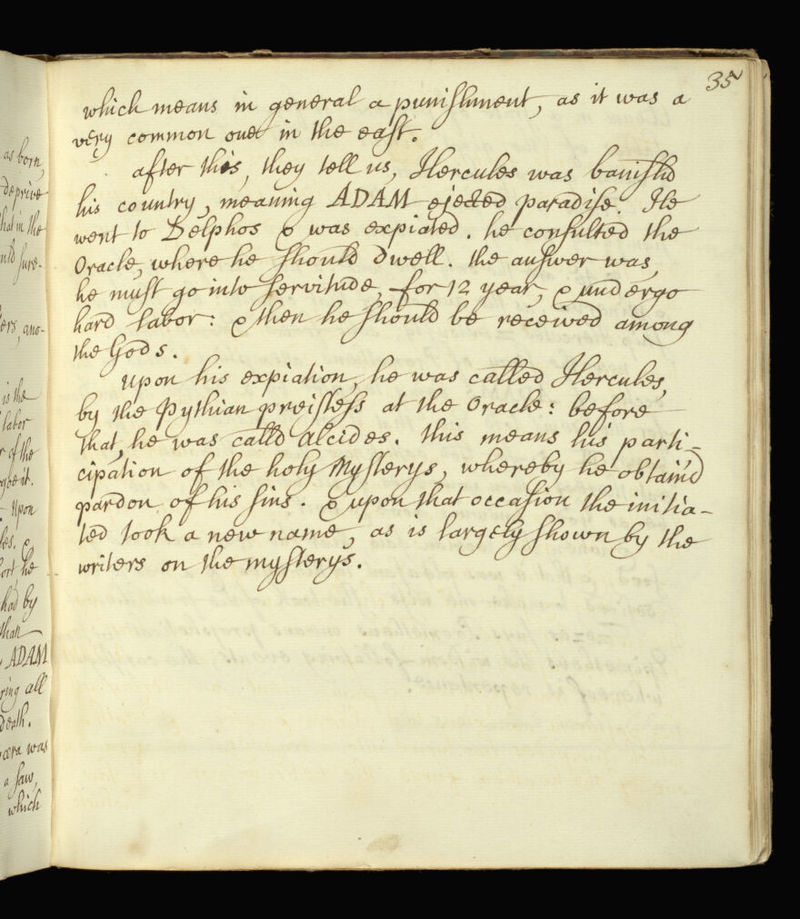 as born,
deprive
that in the
sure-
ers, ano-
is the
labor
r of the
Upon
les, &
he
had by
than
ADAM
ring all
death.
was
a saw,
which
35
which means in general a punishment, as it was a
very common one in the east.
after this, they tell us, Hercules was banishd
his country, meaning ADAM ejected paradise. He
went to Delphos & was expiated. he consulted the
Oracle, where he should dwell. the answer was,
he must go into servitude, for 12 year, & undergo
hard labor: & then he should be received among
the Gods.
upon his expiation, he was called Hercules,
by the Pythian preistess at the Oracle: before
that, he was calld Alcides. this means his parti-
cipation of the holy Mysterys, whereby he obtaind
pardon of his sins. & upon that occasion the initia-
ted took a new name, as is largely shown by the
writers on the mysterys.